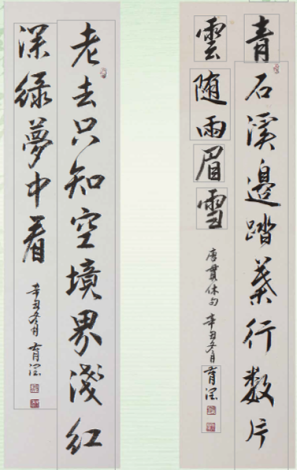 青石溪邊踏葉行数片
雲随兩眉雪
唐貫休句 辛丑冬月
老去只知空境界淺紅
深綠夢中看
辛丑冬月